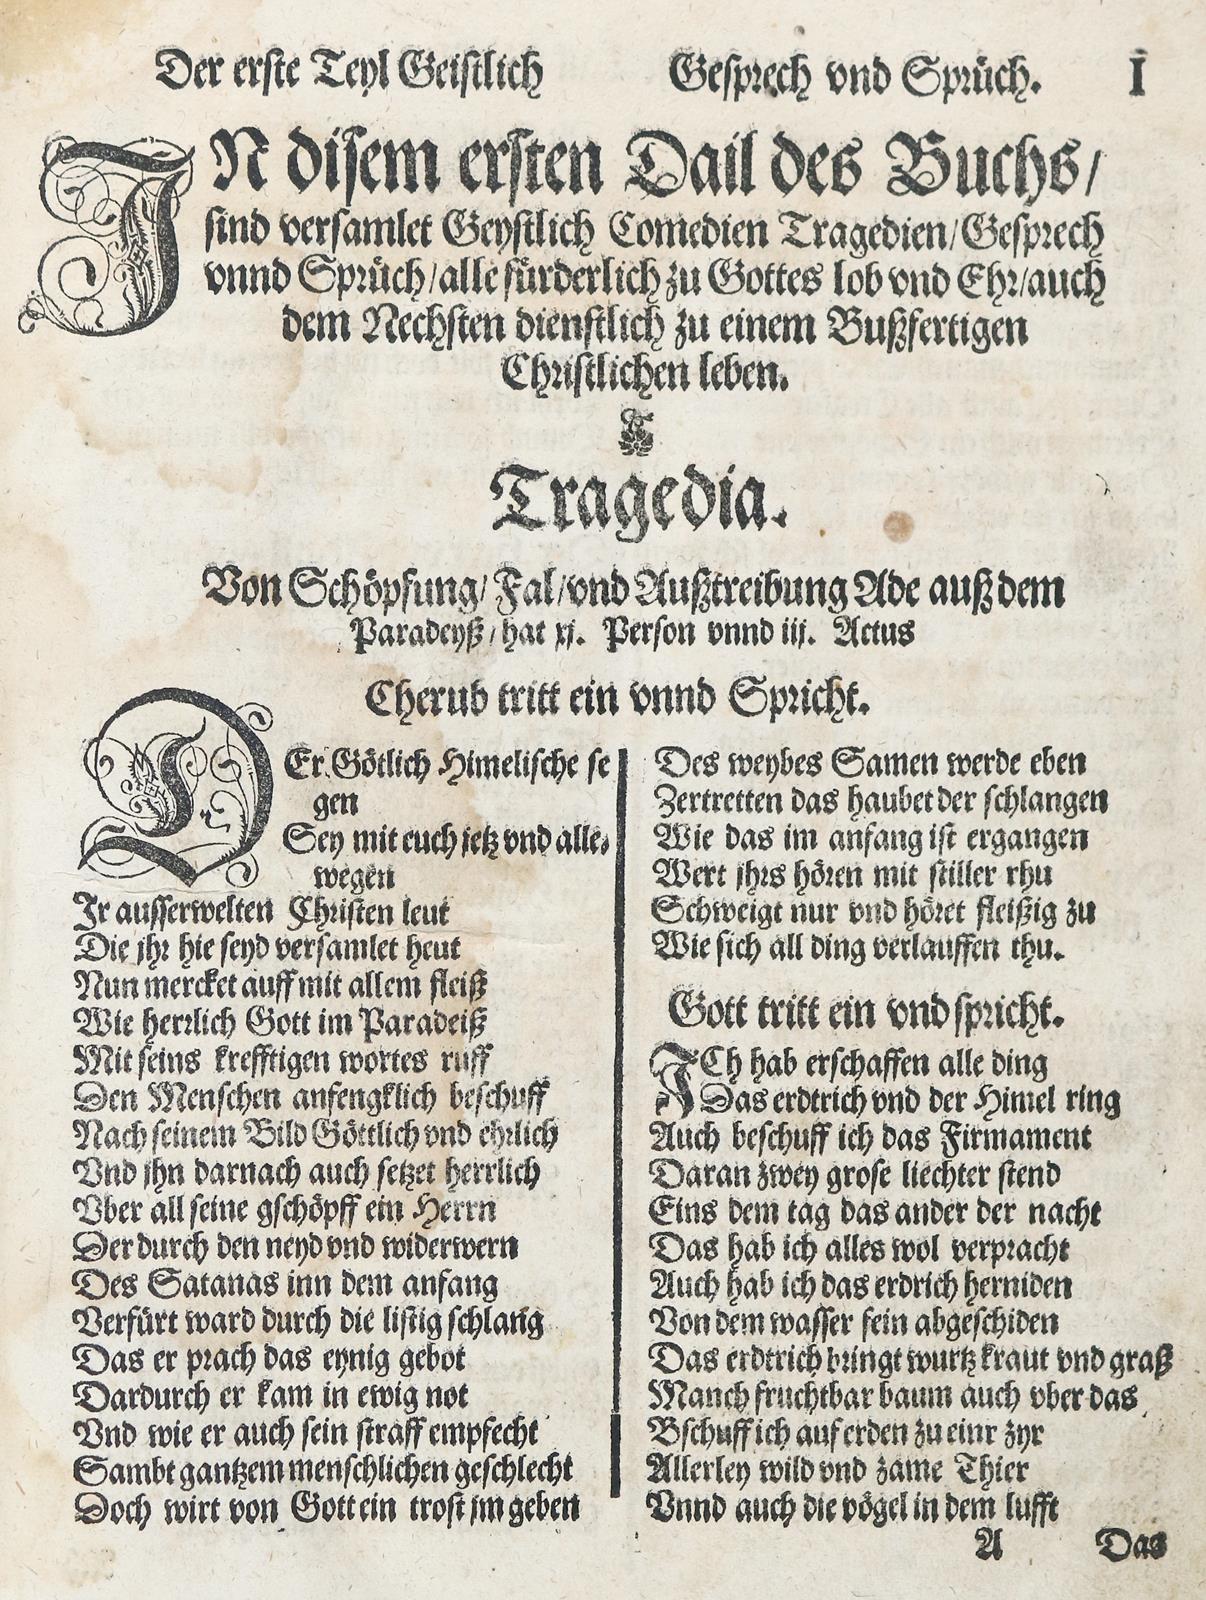 Der erste Teyl Geistlich Gesprech vnd Sprüch. I
IN disem ersten Dail des Buchs/
sind versamlet Geystlich Comedien Tragedien/Gesprech
vnnd Sprüch/alle fürderlich zu Gottes lob vnd Ehr/auch
dem Nechsten dienstlich zu einem Bußfertigen
Christlichen leben.
Tragedia.
Von Schöpfung/Fal/vnd Außtreibung Ade auß dem
Paradeyß/hat xj. Person vnnd iij. Actus
Cherub tritt ein vnnd Spricht.
DEr Götlich Himelische se
gen
Sey mit euch ietz vnd alle-
wegen
Ir ausserwelten Christen leut
Die jhr hie seyd versamlet heut
Nun mercket auff mit allem fleiß
Wie herrlich Gott im Paradeiß
Mit seins krefftigen wortes ruff
Den Menschen anfengklich beschuff
Nach seinem Bild Göttlich vnd ehrlich
Vnd jhn darnach auch setzet herrlich
Vber all seine gschöpff ein Herrn
Der durch den neyd vnd widerwern
Des Satanas inn dem anfang
Verfürt ward durch die listig schlang
Das er prach das eynig gebot
Dardurch er kam in ewig not
Vnd wie er auch sein straff empfecht
Sambt gantzem menschlichen geschlecht
Doch wirt von Gott ein trost jm geben
Des weybes Samen werde eben
Zertretten das haubet der schlangen
Wie das im anfang ist ergangen
Wert jhrs hören mit stiller rhu
Schweigt nur vnd höret fleißig zu
Wie sich all ding verlauffen thu.
Gott tritt ein vnd spricht.
ICh hab erschaffen alle ding
Das erdtrich vnd der Himel ring
Auch beschuff ich das Firmament
Daran zwey grose liechter stend
Eins dem tag das ander der nacht
Das hab ich alles wol verpracht
Auch hab ich das erdrich herniden
Von dem wasser fein abgeschiden
Das erdtrich bringt wurtz kraut vnd graß
Manch fruchtbar baum auch vber das
Bschuff ich auf erden zu einr zyr
Allerley wild vnd zame Thier
Vnnd auch die vögel in dem lufft
A Das